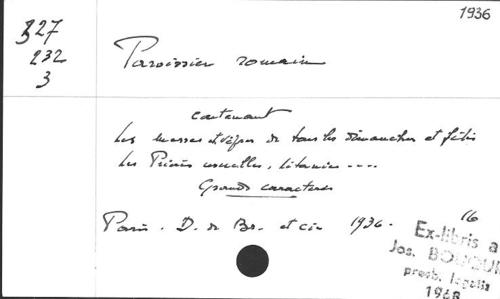 1936
327
232
3
Paroissien romain
contenant
Les messes et vêpres de tous les dimanches et fêtes
Les Prières usuelles, litanies ----
Grands caractères
Paris. D. de Br. et cie 1936. 16
Ex-libris a
Jos.
presb.
1968